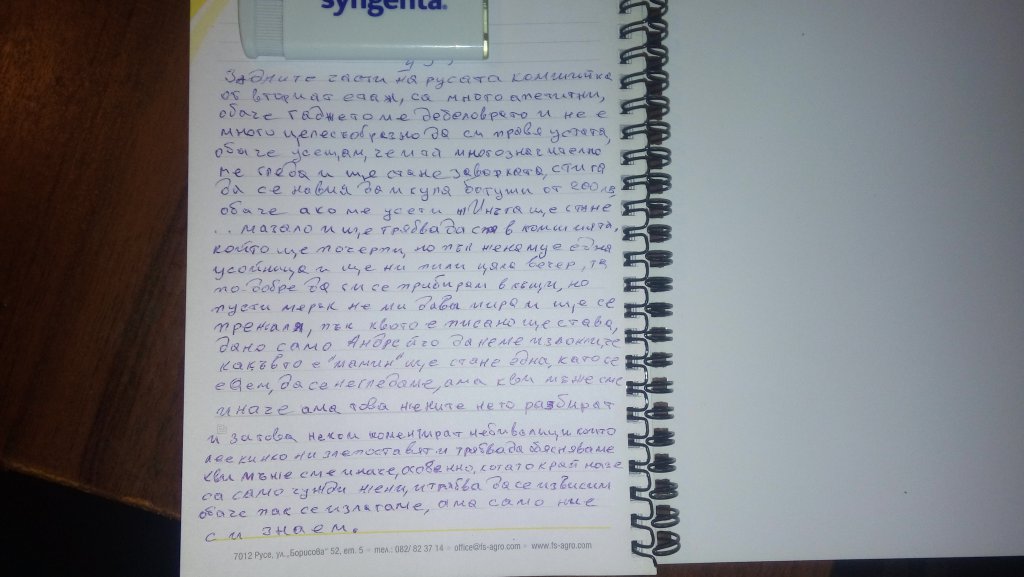 syngenta
Задните части на русата комшийка
от вториат етаж, са много апетитни,
обаче гаджето ме дебне и не е
много целесъобразно да си правя устата,
обаче усещам, че май многозначително
ме гледа и ще стане заварката, стига
да се навия да и купя ботуши от 200лв
обаче ако ме усети ще стане
мазало и ще трябва да съм в комшията,
който ще почерпи, но пък жена му е една
усойница и ще ни пили цяла вечер, та
по добре да си се прибирам в къщи, но
пусти мерак не ми дава мира и ще се
прежаля, пък квото е писано ще става,
дано само Андрейчо да не ме изпоти, че
какъвто е "мамин" ще стане една, като се
еДем, да се негледаме, ама кви мъже сме
иначе ама това жените не го разбират
и затова некои коментират небивалици които
леекинко ни злепоставят и трябва да обясняваме
кви мъже сме иначе, особенно, когато край наже
са само чужди жени, и трабва да се извисим
обаче пак се излагаме, ама само ние
си знаем.
7012 Русе, ул. „Борисова" 52, ет. 5 - тел.: 082/ 82 37 14 - office@fs-agro.com - www.fs-agro.com